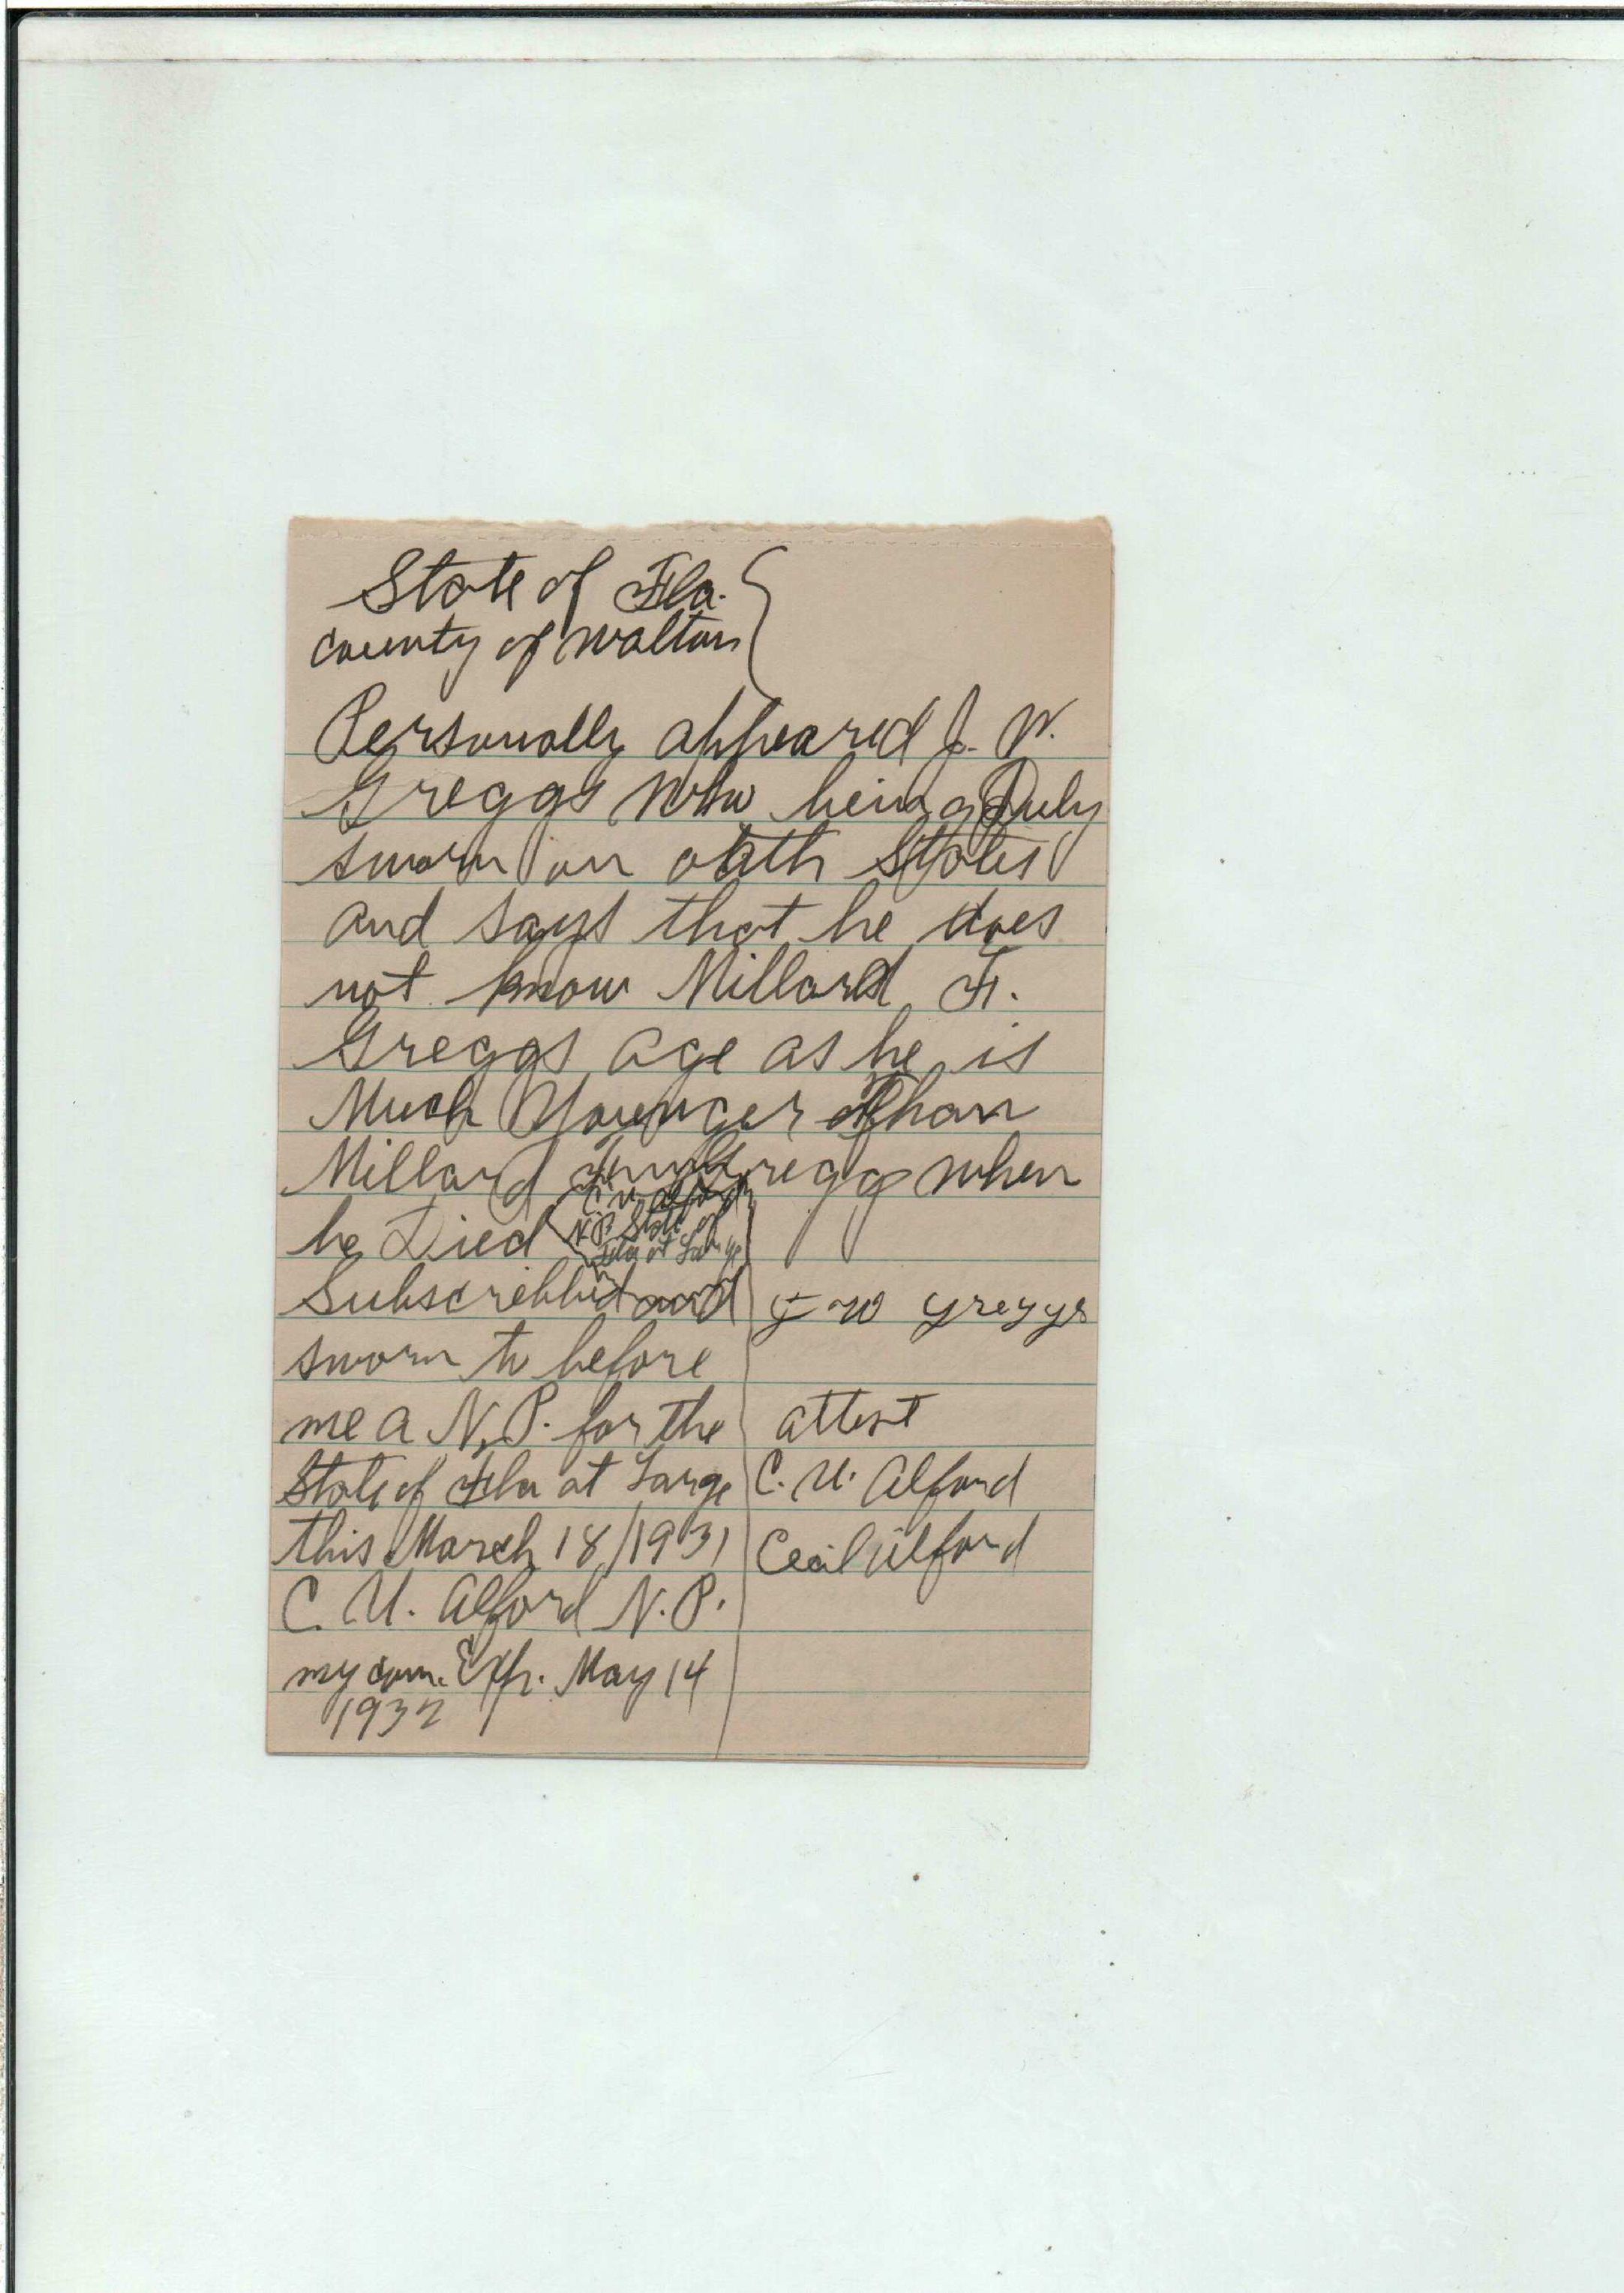 State of Fla.
County of Walton
Personally appeared J. W.
Greggs who being Duly
sworn on oath States
and says that he does
not know Millard F.
Greggs age as he is
Much Younger than
Millard Gregg when
he Died
C. U. Alford
N.P. State of
Fla at Large
Subscribbed and
sworn to before
me a N.P. for the
State of Fla at Large
this March 18/1931
C. U. Alford N.P.
my com. Exp. May 14
1932
J W Greggs
attest
C. U. Alford
Cecil Alford